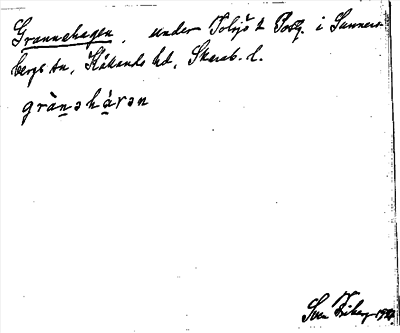 Grannehagen, under Tolsjö & Postg. i Sunners-
bergs sn, Kållands hd, Skarab. l.
grànəhàvən
Sven Friberg